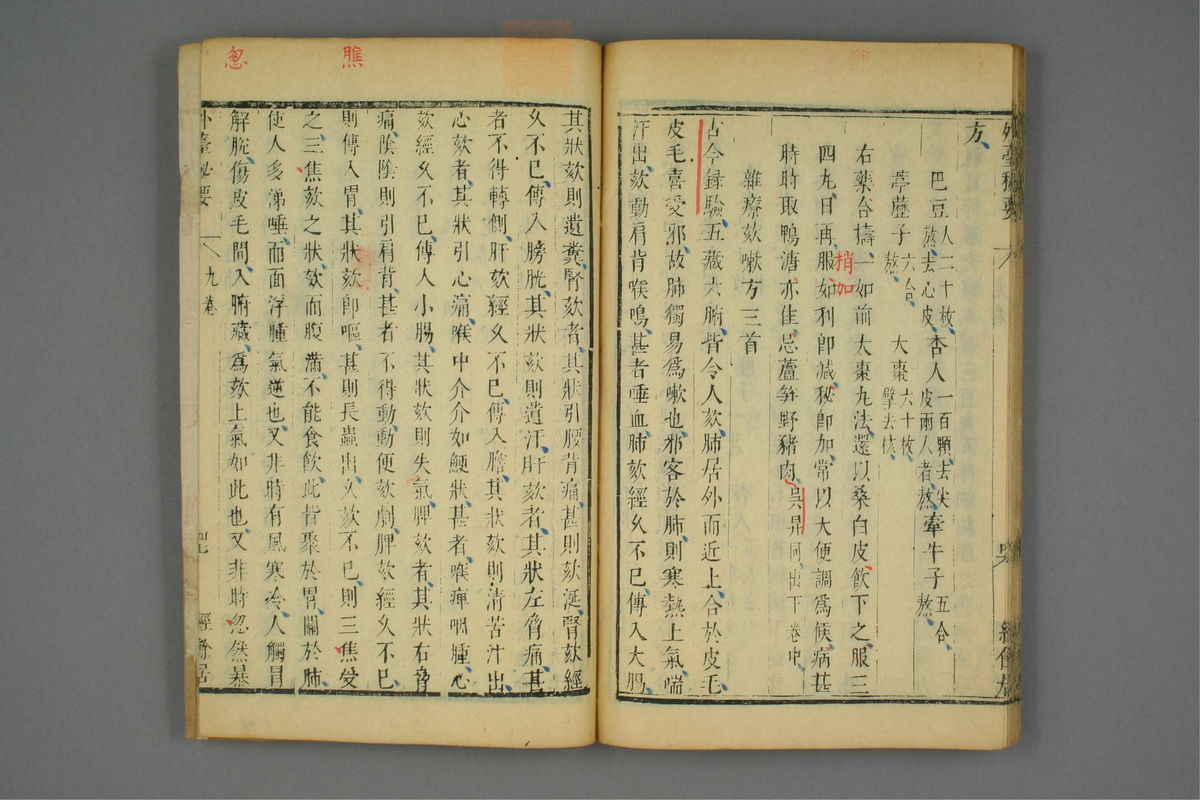 方
巴豆人二十枚熬去心皮 杏人一百顆去尖皮兩人者熬 牽牛子五合熬
葶藶子六合熬 大棗六十枚擘去核
右藥合擣一如前大棗九法還以桑白皮飲下之服三
四九日再服如利卽減秘卽加常以大便調爲候病甚
稍加
時時取鴨溏亦佳忌蘆笋野豬肉吳昇同出下卷中
雜療欬嗽方三首
古今録驗五藏六腑皆令人欬肺居外而近上合於皮毛
皮毛喜受邪故肺獨易爲嗽也邪客於肺則寒熱上氣喘
汗出欬動肩背喉鳴甚者唾血肺欬經久不已傳入大腸
其狀欬則遺糞腎欬者其狀引腰背痛甚則欬涎腎欬經
久不已傳入膀胱其狀欬則遺汗肝欬者其狀左脅痛甚
者不得轉側肝欬經久不已傳入膽其狀欬則清苦汁出
心欬者其狀引心痛喉中介介如鯁狀甚者喉痺咽腫心
欬經久不已傳入小腸其狀欬則失氣脾欬者其狀右脅
痛陰陰則引肩背甚者不得動動便欬劇脾欬經久不已
則傳入胃其狀欬卽嘔甚則長蟲出久欬不已則三焦受
之三焦欬之狀欬而腹滿不能食飲此皆聚於胃關於肺
使人多涕唾而面浮腫氣逆也又非時有風寒冷人觸冒
解脫傷皮毛間入腑藏爲欬上氣如此也又非時忽然暴
外臺秘要 九卷 經餘居
膲
忽